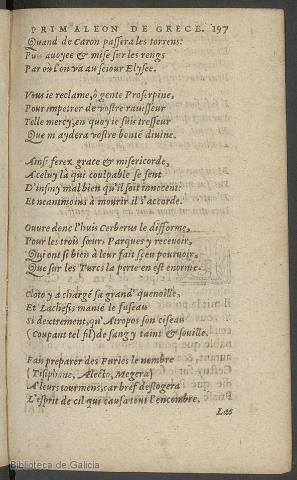 PRIMALEON DE GRECE. 197
Quand de Caron passera les torrens:
Puis auoyee & mise sur les rengs
Par ou l'on va au seiour Elysee.
Vous ie reclame, ô gente Proserpine,
Pour impetrer de vostre rauisseur
Telle mercy, en quoy ie suis tresseur
Que m'aydera vostre bonté diuine.
Ainsi ferez grace & misericorde,
A celuy là qui coulpable se sent
D'infiny mal bien qu'il soit innocent:
Et neantmoins à mourir il s'accorde.
Ouure donc l'huis Cerberus le difforme,
Pour les trois sœurs Parques y receuoir,
Qui ont si bien à leur fait sceu pournoir,
Que sur les Turcs la perte en est enorme.
Cloto y a chargé sa grand' quenoille,
Et Lachesis manie le fuseau
Si dextrement, qu'Atropos son ciseau
(Coupant tel fil) de sang y taint & souille.
Fais preparer des Furies le nombre
(Tisiphone, Alecto, Megera)
A leurs tourmens, car bref deslogera
L'esprit de cil qui causa tout l'encombre.
Las
Biblioteca de Galicia